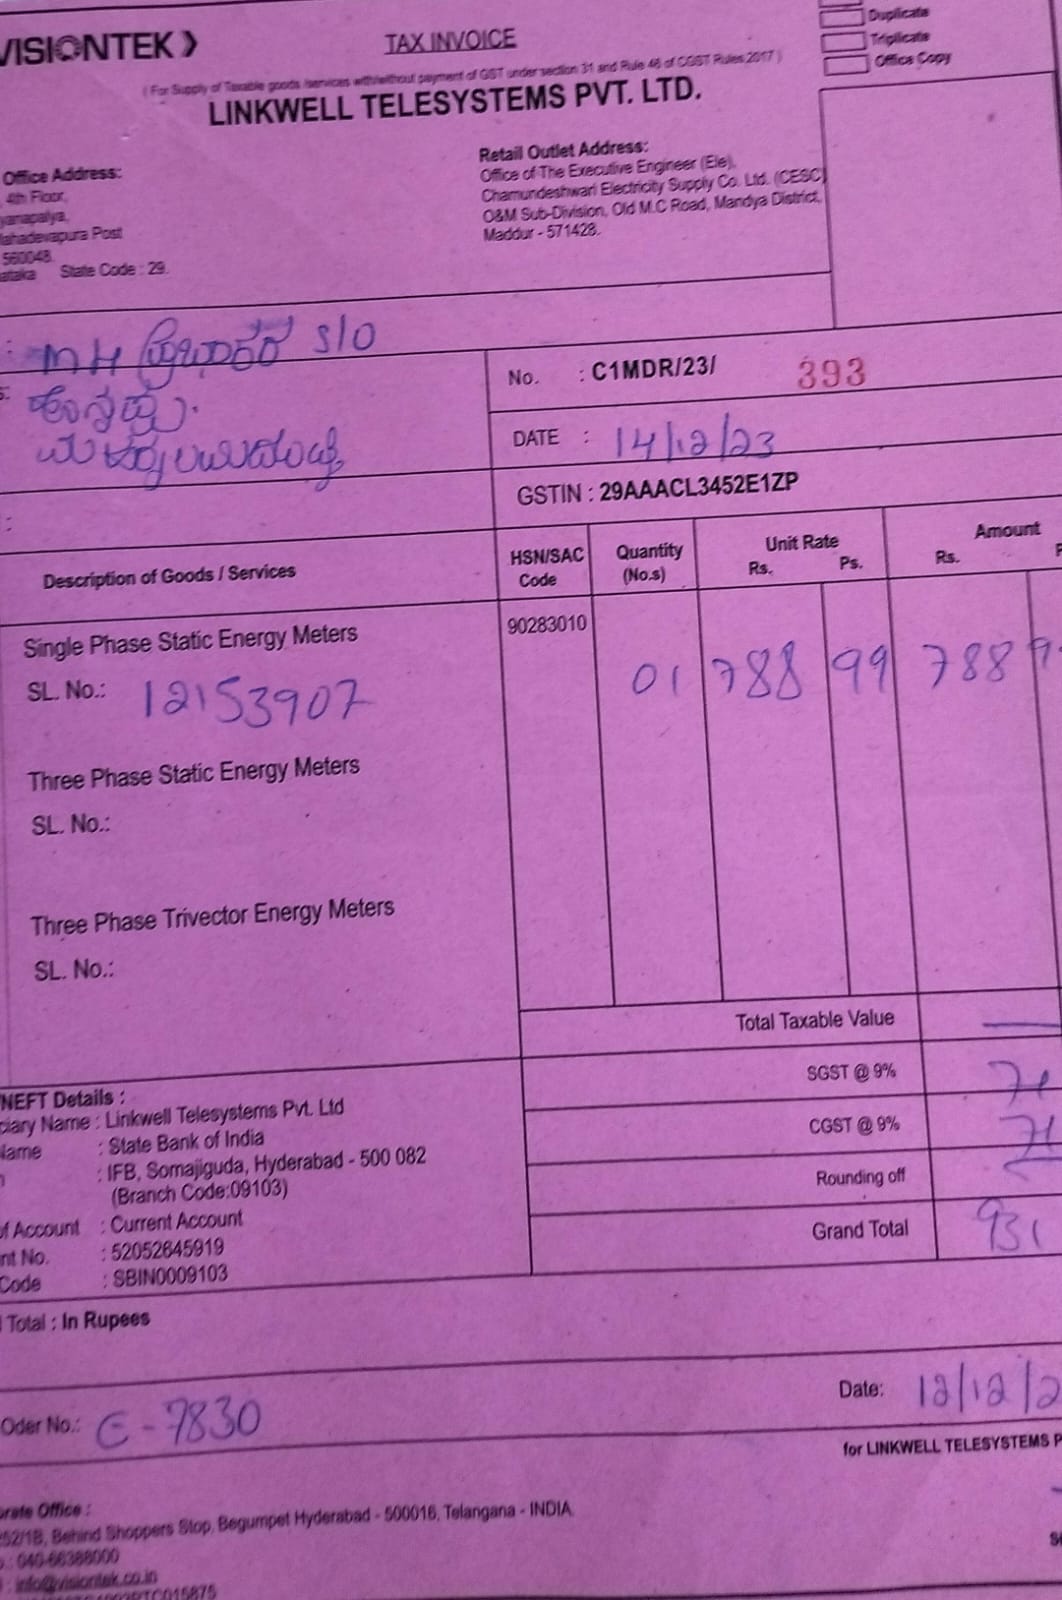 VISIONTEK
TAX INVOICE
Duplicate
Triplicate
Office Copy
( For Supply of Taxable goods /services with/without payment of GST under section 31 and Rule 46 of CGST Rules 2017 )
LINKWELL TELESYSTEMS PVT. LTD.
Office Address:
4th Floor,
Post
560048.
State Code : 29.
Retail Outlet Address:
Office of The Executive Engineer (Ele),
Chamundeshwari Electricity Supply Co. Ltd. (CESC)
O&M Sub-Division, Old M.C Road, Mandya District,
Maddur - 571428.
: MH ಪ್ರಭಾಕರ S/O
No. : C1MDR/23/ 393
DATE : 14/12/23
GSTIN : 29AAACL3452E1ZP
Description of Goods / Services
HSN/SAC Code
Quantity (No.s)
Unit Rate
Rs. Ps.
Amount
Rs.
Single Phase Static Energy Meters 90283010
SL. No.: 12153907 01 788 99 788
Three Phase Static Energy Meters
SL. No.:
Three Phase Trivector Energy Meters
SL. No.:
Total Taxable Value
SGST @ 9% 71
CGST @ 9% 71
Rounding off
Grand Total 931
NEFT Details :
Name : Linkwell Telesystems Pvt. Ltd
: State Bank of India
: IFB, Somajiguda, Hyderabad - 500 082
(Branch Code:09103)
Account : Current Account
No. : 52052645919
Code : SBIN0009103
Total : In Rupees
Oder No.: E-7830
Date: 12/12/2
for LINKWELL TELESYSTEMS P
Office :
252/1B, Behind Shoppers Stop, Begumpet Hyderabad - 500016, Telangana - INDIA
: 040-66388000
: info@visiontek.co.in